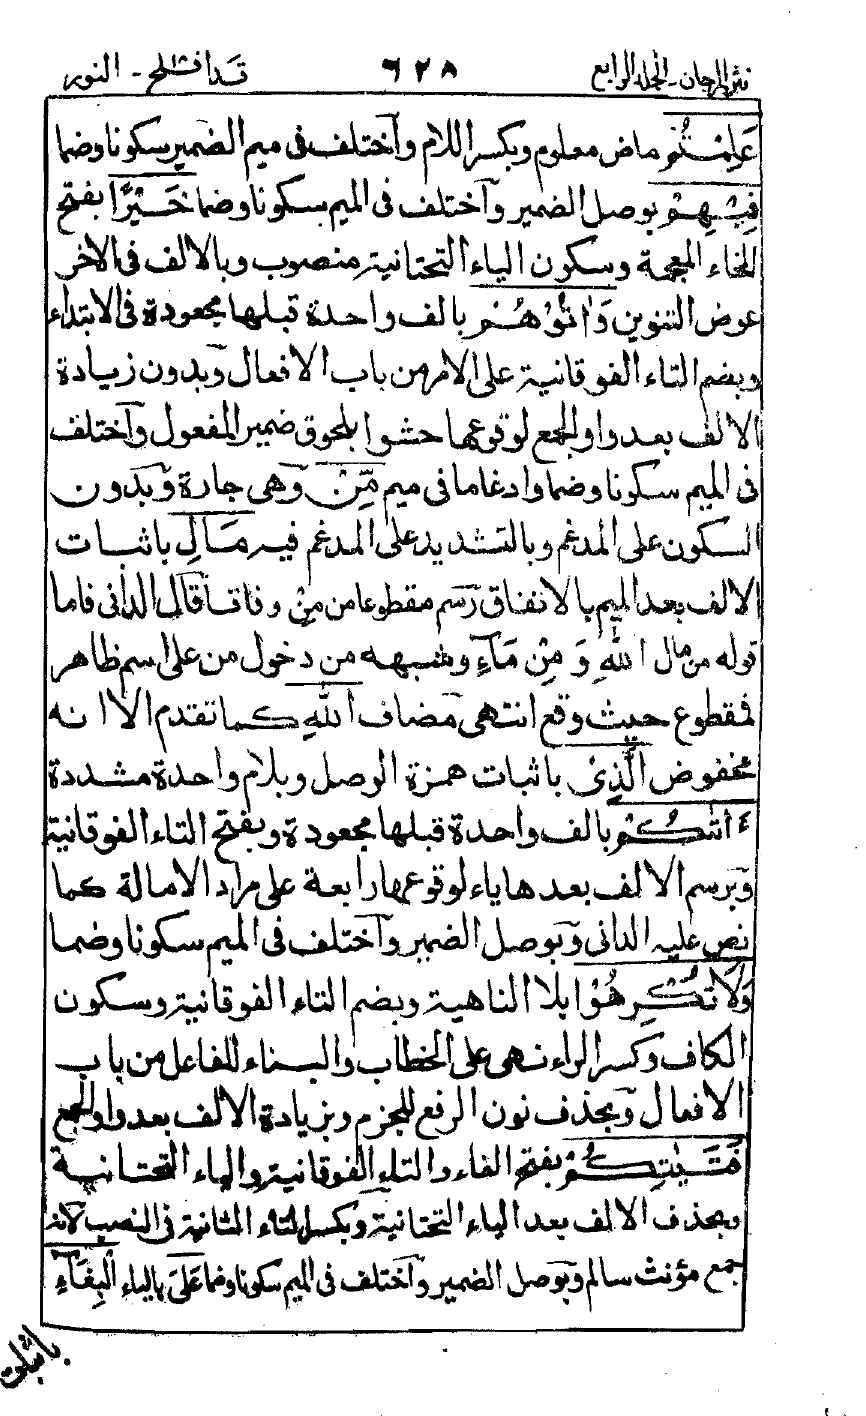 نثر المرجان - المجلد الرابع ٦٢٨ قد افلح - النور
عَلِمْتُمْ ماض معلوم وبكسر اللام وآختلف فى ميم الضمير سكونا وضما
فِيْهِمْ بوصل الضمير وآختلف فى الميم سكونا وضما خَيْرًا بفتح
الخاء المعجمة وسكون الياء التحتانية منصوب وبالالف فى الاخر
عوض التنوين وَاٰتُوْهُمْ بالف واحدة قبلها مجعودة فى الابتداء
وبضم التاء الفوقانية على الامر من باب الافعال وَبدون زيادة
الالف بعد واو الجمع لوقوعها حشوا بلحوق ضمير المفعول وآختلف
فى الميم سكونا وضما وادغاما فى ميم مِّنْ وَهى جارة وَبدون
السكون على المدغم وبالتشديد على المدغم فيه مَالِ باثبات
الالف بعد الميم بالاتفاق رَسم مقطوعا من مِنْ وفاقا قال الدانى فاما
قوله من مال اللهِ وَ مِنْ مَآءٍ وشبهه من دخول من على اسم ظاهر
فمقطوع حيث وقع انتهى مَضاف اللهِ كما تقدم الا انه
مخفوض الَّذِىْ باثبات همزة الوصل وبلام واحدة مشددة
ءاتٰىكُمْ بالف واحدة قبلها مجعودة وبفتح التاء الفوقانية
وَبرسم الالف بعدها ياء لوقوعها رابعة على مراد الامالة كما
نص عليه الدانى وَبوصل الضمير وآختلف فى الميم سكونا وضما
وَلَا تُكْرِهُوْا بلا الناهية وبضم التاء الفوقانية وسكون
الكاف وَكسر الراء نهى على الخطاب والبناء للفاعل من باب
الافعال وَبحذف نون الرفع للجزم وبزيادة الالف بعد واو الجمع
فَتَيٰتِكُمْ بفتح الفاء والتاء الفوقانية والياء التحتانية
وبحذف الالف بعد الياء التحتانية وَبكسر التاء الثانية فى النصب لانه
جمع مؤنث سالم وَبوصل الضمير وآختلف فى الميم سكونا وضما عَلَى بالياء الْبِغَآءِ
باثبات